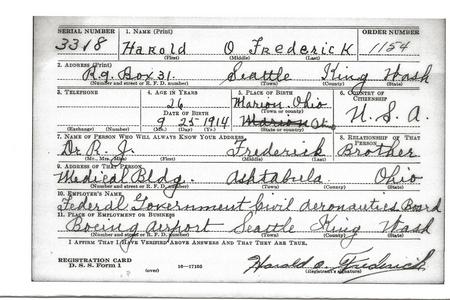 SERIAL NUMBER 1. NAME (Print) ORDER NUMBER
3318 Harold O Frederick 1154
(First) (Middle) (Last)
2. ADDRESS (Print)
R9. Box 31. Seattle King Wash
(Number and street or R. F. D. number) (Town) (County) (State)
3. TELEPHONE 4. AGE IN YEARS 5. PLACE OF BIRTH 6. COUNTRY OF CITIZENSHIP
26 Marion, Ohio
DATE OF BIRTH (Town or county)
9 25-1914 Marion O. U.S.A.
(Exchange) (No.) (Mo.) (Day) (Yr.) (State or country)
7. NAME OF PERSON WHO WILL ALWAYS KNOW YOUR ADDRESS 8. RELATIONSHIP OF THAT PERSON
Dr. R. J. Frederick Brother
(Mr., Mrs., Miss) (First) (Middle) (Last)
9. ADDRESS OF THAT PERSON
Medical Bldg. Ashtabula Ohio
(Number and street or R. F. D. number) (Town) (County) (State)
10. EMPLOYER'S NAME
Federal Government Civil Aeronautics Board
11. PLACE OF EMPLOYMENT OR BUSINESS
Boeing airport Seattle King Wash
(Number and street or R. F. D. number) (Town) (County) (State)
I AFFIRM THAT I HAVE VERIFIED ABOVE ANSWERS AND THAT THEY ARE TRUE.
REGISTRATION CARD
D. S. S. Form 1 (over) 16—17105 Harold O. Frederick
(Registrant's signature)